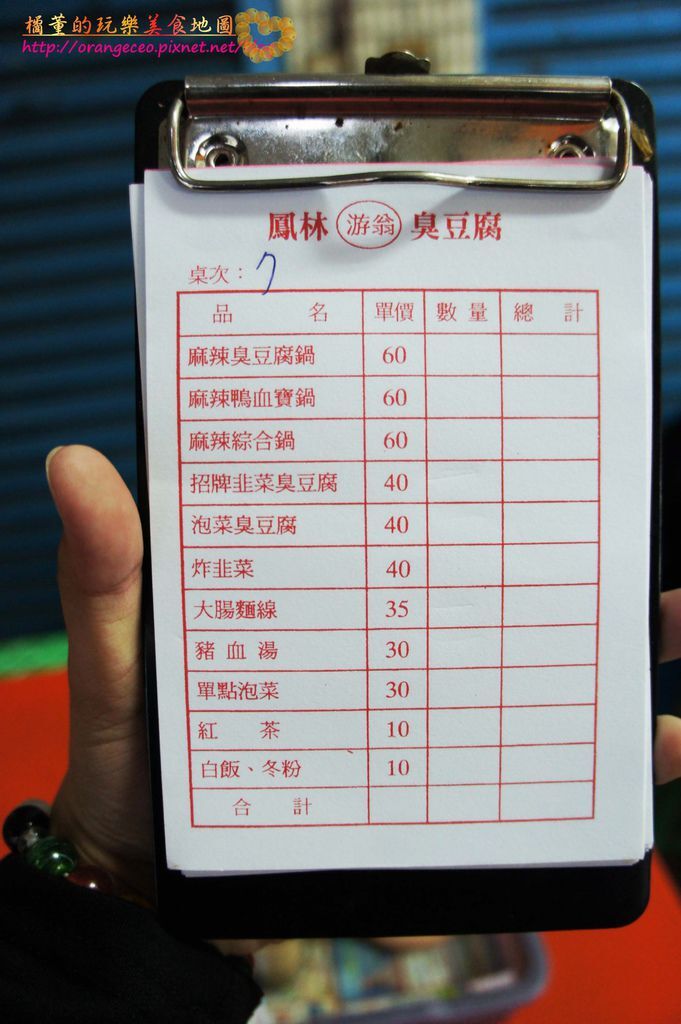 橘董的玩樂美食地圖
http://orangeceo.pixnet.net/
鳳林 游翁 臭豆腐
桌次：7
品 名 單價 數量 總計
麻辣臭豆腐鍋 60
麻辣鴨血寶鍋 60
麻辣綜合鍋 60
招牌韭菜臭豆腐 40
泡菜臭豆腐 40
炸韭菜 40
大腸麵線 35
豬血湯 30
單點泡菜 30
紅 茶 10
白飯、冬粉 10
合 計